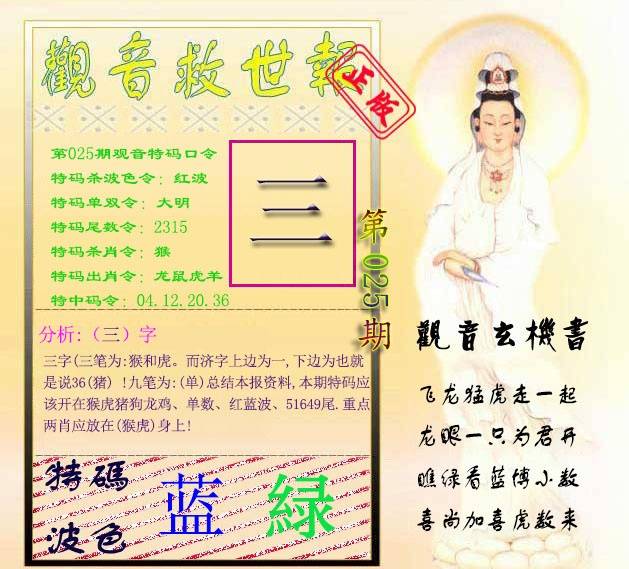 觀音救世報
正版
第025期观音特码口令
特码杀波色令：红波
特码单双令：大明
特码尾数令：2315
特码杀肖令：猴
特码出肖令：龙鼠虎羊
特中码令：04.12.20.36
三
第025期
分析:（三）字
三字(三笔为:猴和虎。而济字上边为一,下边为也就
是说36(猪) !九笔为:(单)总结本报资料,本期特码应
该开在猴虎猪狗龙鸡、单数、红蓝波、51649尾.重点
两肖应放在(猴虎)身上!
特碼
波色
蓝 緑
觀音玄機書
飞龙猛虎走一起
龙眼一只为君开
瞧绿看蓝博小数
喜尚加喜虎数来